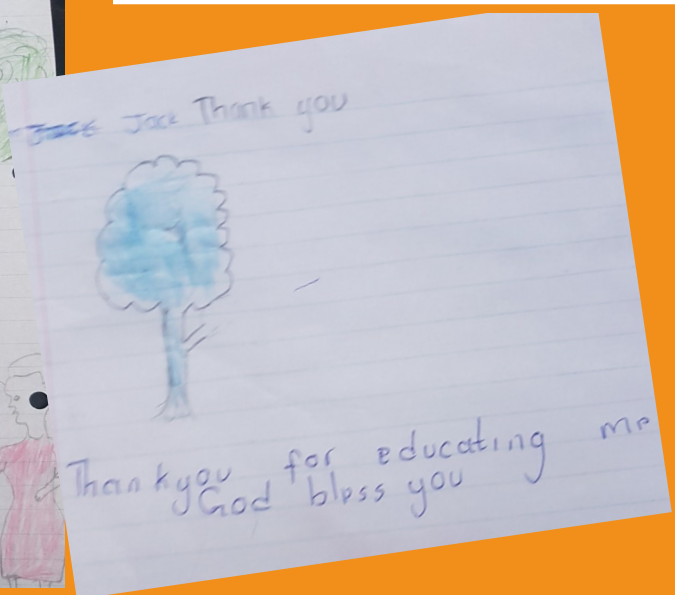 Jack Thank you
Thankyou for educating me
God bless you